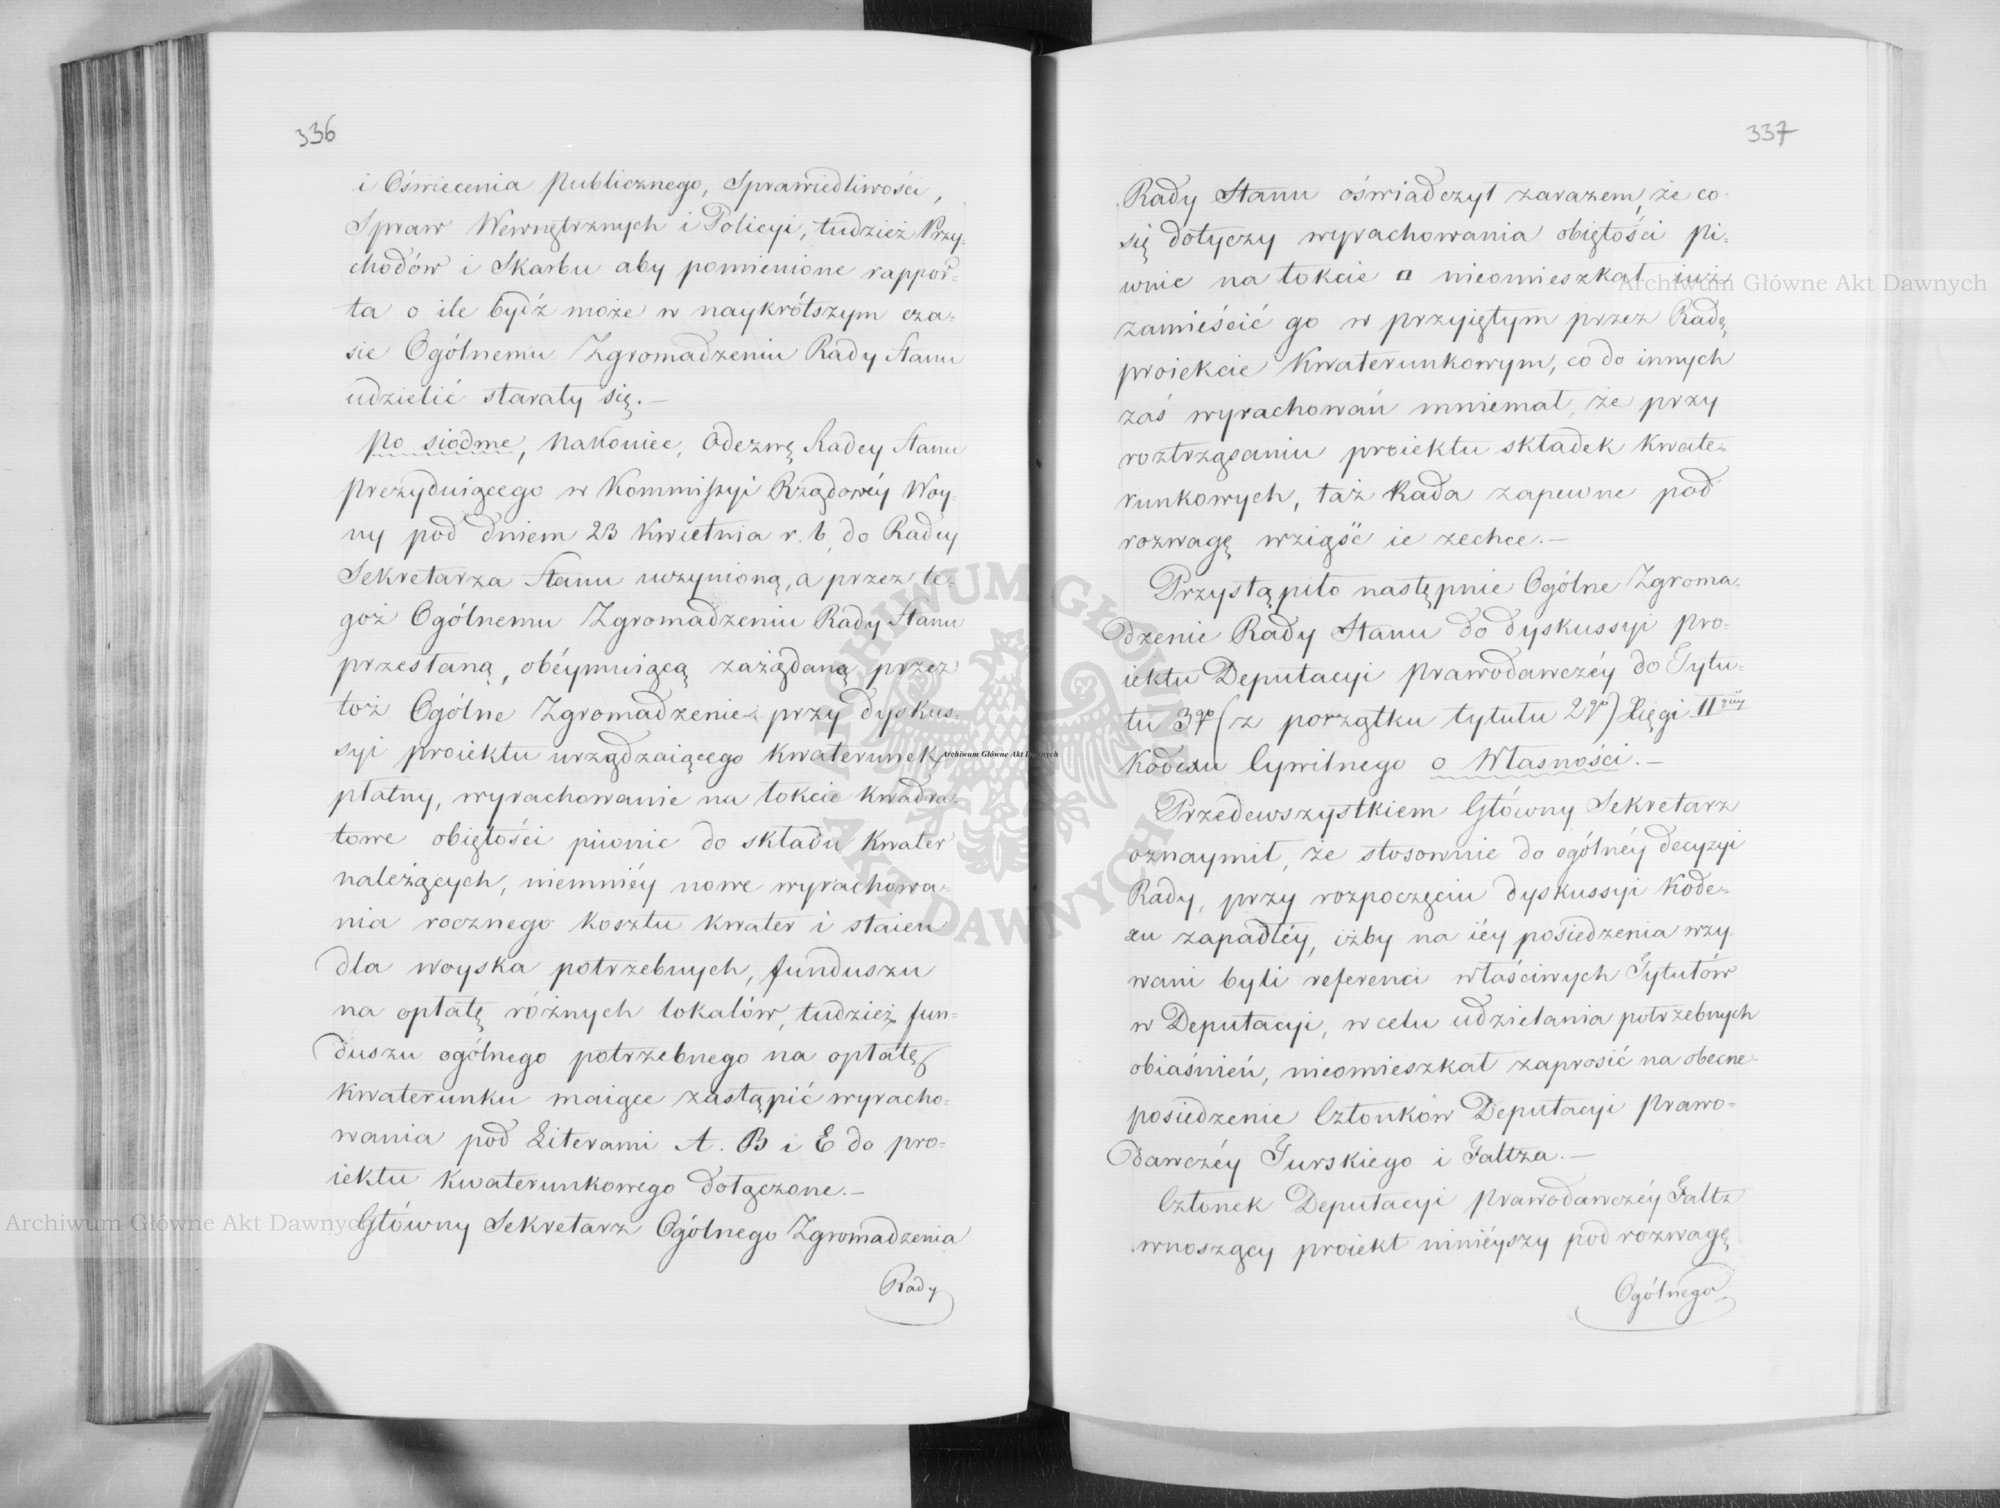 336
i Oświecenia Publicznego, Sprawiedliwości,
Spraw Wewnętrznych i Policyi, tudzież Przy-
chodów i Skarbu aby pomienione rappor-
ta o ile bydź może w naykrótszym cza-
sie Ogólnemu Zgromadzeniu Rady Stanu
udzielić starały się.—
Po siódme, Nakoniec, Odezwę Radcy Stanu
Prezyduiącego w Kommissyi Rządowéy Woy-
ny pod dniem 23 Kwietnia r. b. do Radcy
Sekretarza Stanu uczynioną, a przez te-
goż Ogólnemu Zgromadzeniu Rady Stanu
przesłaną, obéymuiącą zażądaną przez
toż Ogólne Zgromadzenie przy dyskus-
syi proiektu urządzaiącego kwaterunek
płatny, wyrachowanie na łokcie kwadra-
towe obiętości piwnic do składu kwater
należących, niemniéy nowe wyrachowa-
nia rocznego kosztu kwater i staien
dla woyska potrzebnych, funduszu
na opłatę różnych lokalów, tudzież fun-
duszu ogólnego potrzebnego na opłatę
kwaterunku maiące zastąpić wyracho-
wania pod Literami A. B i E do pro-
iektu kwaterunkowego dołączone.—
Główny Sekretarz Ogólnego Zgromadzenia
Rady
337
Rady Stanu oświadczył zarazem, że co
się dotyczy wyrachowania obiętości pi-
wnic na łokcie □ nieomieszkał iuż
zamieścić go w przyiętym przez Radę
proiekcie Kwaterunkowym, co do innych
zaś wyrachowań mniemał, że przy
roztrząsaniu proiektu składek kwate-
runkowych, taż Rada zapewne pod
rozwagę wziąść ie zechce.—
Przystąpiło następnie Ogólne Zgroma-
dzenie Rady Stanu do dyskussyi pro-
iektu Deputacyi Prawodawczéy do Tytu-
łu 3go (z porządku tytułu 2go) Xięgi IIgiéy
Kodexu Cywilnego o Własności.—
Przedewszystkiem Główny Sekretarz
oznaymił, że stosownie do ogólnéy decyzyi
Rady, przy rozpoczęciu dyskussyi Kode-
xu zapadłéy, iżby na iéy posiedzenia wzy
wani byli referenci właściwych Tytułów
w Deputacyi, w celu udzielania potrzebnych
obiaśnień, nieomieszkał zaprosić na obecne
posiedzenie Członków Deputacyi Prawo-
dawczéy Gurskiego i Faltza.—
Członek Deputacyi Prawodawczéy Faltz
wnoszący proiekt niniéyszy pod rozwagę
Ogólnego
Archiwum Główne Akt Dawnych
Archiwum Główne Akt Dawnych
Archiwum Główne Akt Dawnych
ARCHIWUM GŁÓWNE AKT DAWNYCH